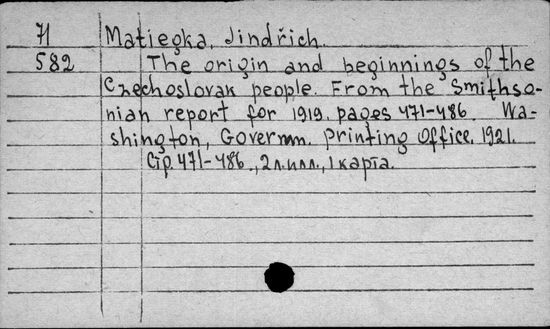 71 Matiegka, Jindřich.
582 The origin and beginnings of the
Czechoslovak people. From the Smithso-
nian report for 1919. pages 471-486. Wa-
shington, Governm. printing office. 1921.
Стр. 471-486., 2 л. илл., 1 карта.